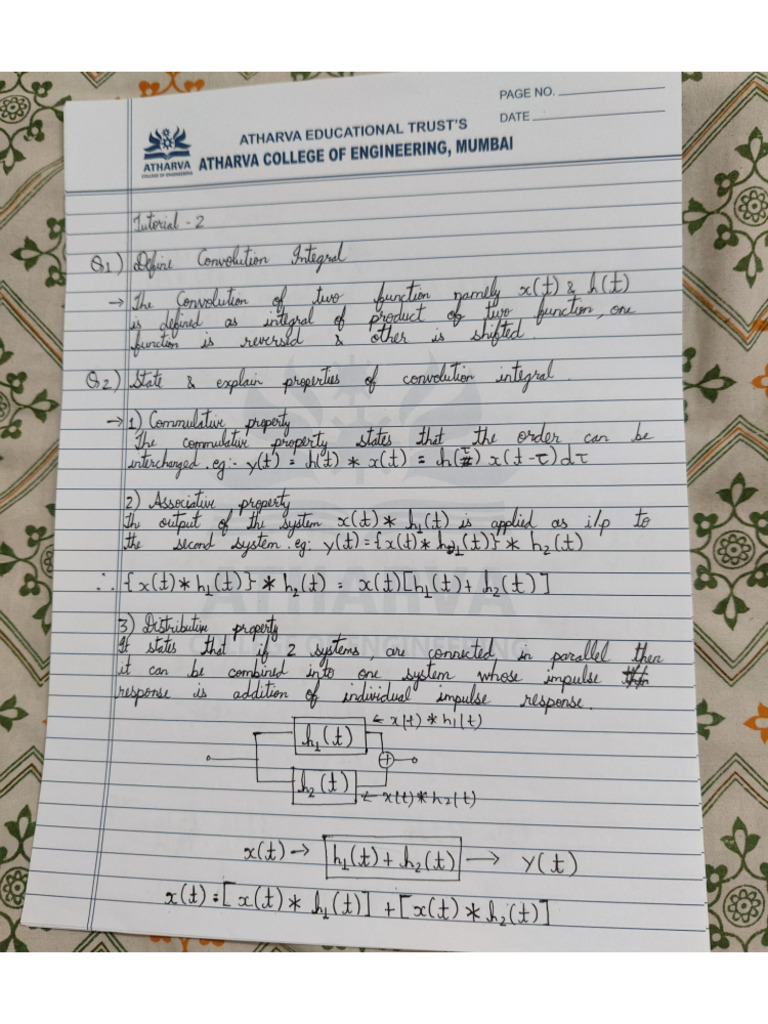 PAGE NO.
DATE
ATHARVA EDUCATIONAL TRUST'S
ATHARVA COLLEGE OF ENGINEERING, MUMBAI
ATHARVA
COLLEGE OF ENGINEERING
Tutorial - 2
Q1) Define Convolution Integral
→ The Convolution of two function namely x(t) & h(t)
is defined as integral of product of two function, one
function is reversed & other is shifted.
Q2) State & explain properties of convolution integral.
→ 1) Commulative property
The commulative property states that the order can be
interchanged. eg:- y(t) = h(t) * x(t) = h(τ) x(t-τ)dτ
2) Associative property
The output of the system x(t) * h₁(t) is applied as i/p to
the second system. eg: y(t) = {x(t) * h₁(t)} * h₂(t)
∴ {x(t) * h₁(t)} * h₂(t) = x(t)[h₁(t) + h₂(t)]
ATHARVA
COLLEGE OF ENGINEERING
3) Distributive property
It states that if 2 systems, are connected in parallel then
it can be combined into one system whose impulse
response is addition of individual impulse response.
← x(t) * h₁(t)
h₁(t)
+
h₂(t)
← x(t) * h₂(t)
x(t) → h₁(t) + h₂(t) → y(t)
x(t) = [x(t) * h₁(t)] + [x(t) * h₂(t)]